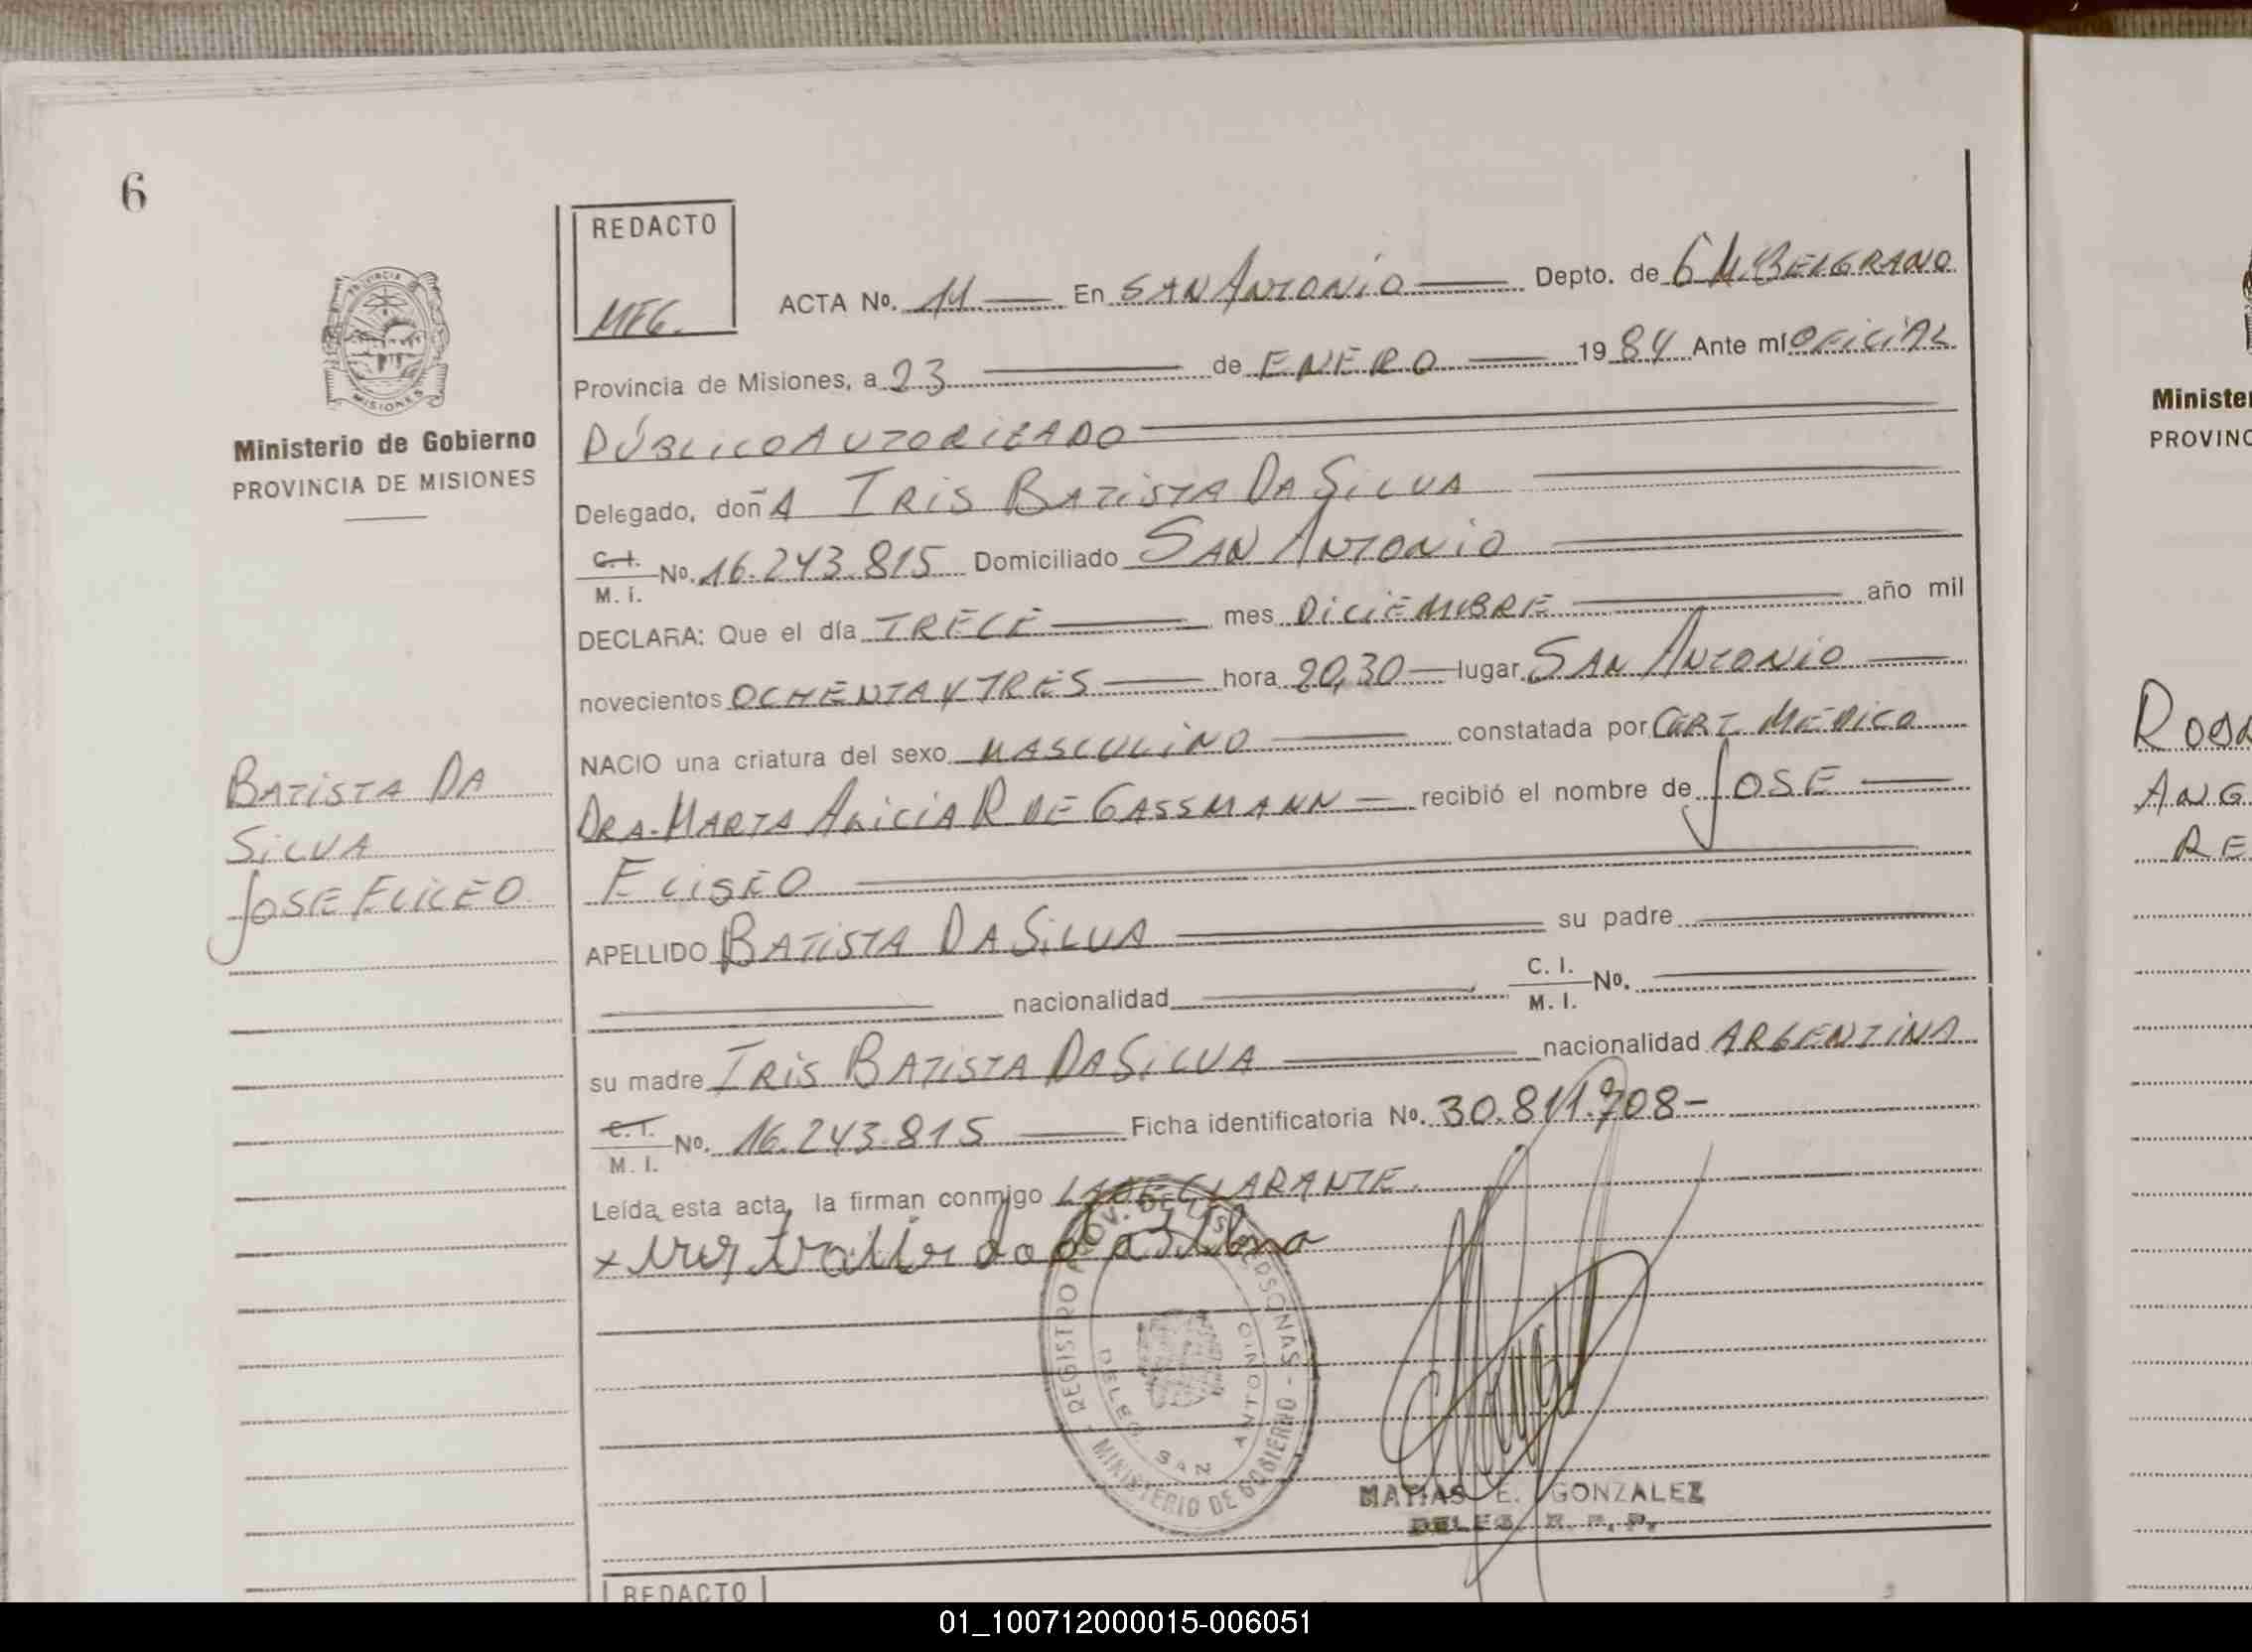 6
REDACTO
MFG.
PROVINCIA
MISIONES
Ministerio de Gobierno
PROVINCIA DE MISIONES
ACTA No. 11 En SAN ANTONIO Depto. de G M. BELGRANO
Provincia de Misiones, a 23 de ENERO 1984 Ante mí OFICIAL
PÚBLICO AUTORIZADO
Delegado, doñA IRIS BATISTA DA SILVA
C. I. M. I. No. 16.243.815 Domiciliado SAN ANTONIO
DECLARA: Que el día TRECE mes DICIEMBRE año mil
novecientos OCHENTA Y TRES hora 20,30 lugar SAN ANTONIO
NACIO una criatura del sexo MASCULINO constatada por CERT. MEDICO
DRA. MARTA ALICIA R DE GASSMANN recibió el nombre de JOSE
ELISEO
APELLIDO BATISTA DA SILVA su padre
nacionalidad C. I. M. I. No.
su madre IRIS BATISTA DA SILVA nacionalidad ARGENTINA
C. I. M. I. No. 16.243.815 Ficha identificatoria No. 30.811.708-
Leída esta acta, la firman conmigo LA DECLARANTE.
BATISTA DA
SILVA
JOSE ELICEO
REGISTRO PROV. DE LAS PERSONAS - MINISTERIO DE GOBIERNO
DELEG. SAN ANTONIO
MATIAS E. GONZALEZ
DELEG. R. P. P.
REDACTO
Minister
PROVINC
ANG
RE
01_100712000015-006051